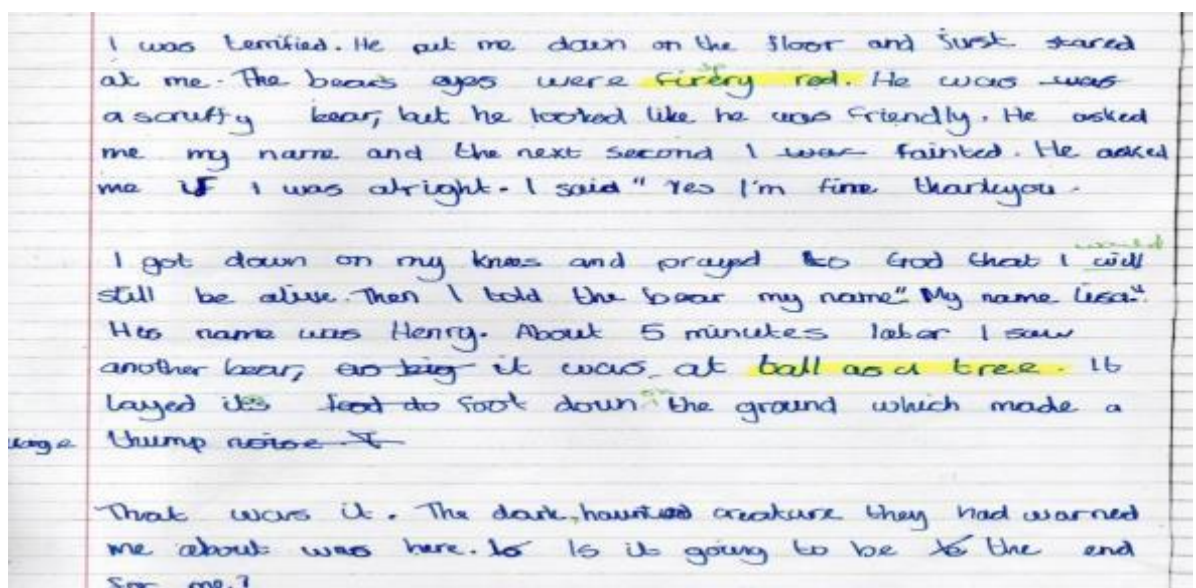 I was terrified. He put me down on the floor and just stared
at me. The bears eyes were firery red. He was was
a scruffy bear, but he looked like he was friendly. He asked
me my name and the next second I was fainted. He asked
me if I was alright. I said " Yes I'm fine thankyou.
I got down on my knees and prayed to God that I will
still be alive. Then I told the bear my name" My name Lisa".
His name was Henry. About 5 minutes later I saw
another bear, as big it was at tall as a tree. It
layed its foot down the ground which made a
thump noise
That was it. The dark, haunted creature they had warned
me about was here. Is it going to be the end
for me?